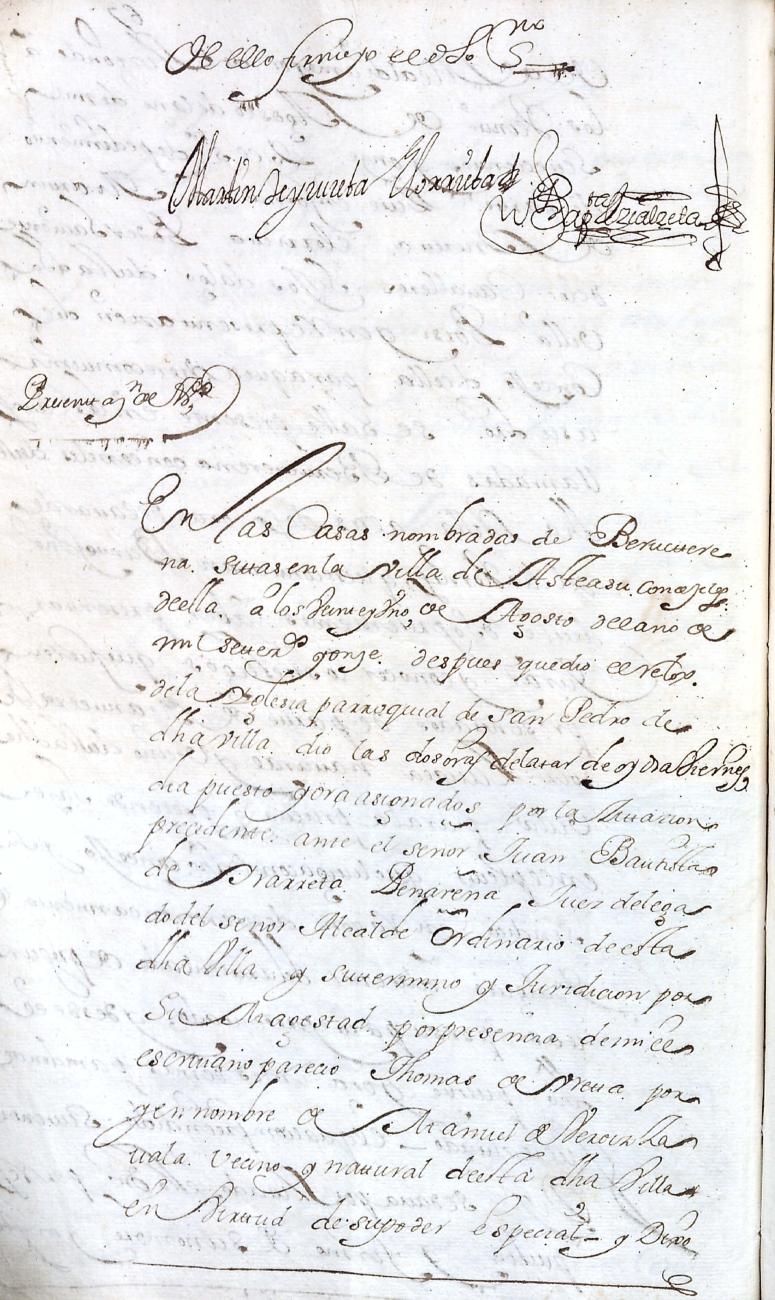 de ello firmo yo el dho S.no
Martin de yrureta Elorruta
Bap.ta
En las Casas nombradas de Berucuere
na. sittas en la Villa de Asteasu, concejiles
de ella. a los beinte y Uno de Agosto del año de
mil setez.s y onze. despues que dio el relox.
de la Yglesia parroquial de San Pedro de
dha villa. dio las dos oras de la tarde de oy dia Viernes,
dia puesto y ora asionados por la situacion
precedente. ante el señor Juan Bautista
de Yrarreta. Juez delega
do del señor Alcalde Ordinario de esta
dha Villa y su termino y Juridicion por
Su Magestad por presencia de mi el
escriuano parecio Thomas de Vreta. por
y en nombre de Manuel de
uala. Vecino y natural de esta dha Villa
en Virtud de su poder especial y Dixo